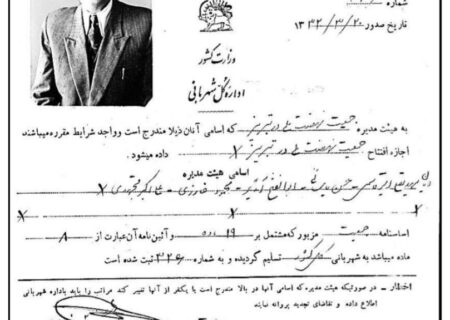 شماره
تاریخ صدور ۱۳۳۲/۳/۲۰
وزارت کشور
اداره کل شهربانی
به هیئت مدیره جمعیت نهضت ملی در تبریز که اسامی آنان ذیلا مندرج است و واجد شرایط مقرره میباشند
اجازه افتتاح جمعیت نهضت ملی در تبریز X داده میشود.
اسامی هیئت مدیره
X
X X X
اساسنامه جمعیت مزبور که مشتمل بر ۱۹ ماده و آئین نامه آن عبارت از ۸
ماده میباشد به شهربانی کل کشور تسلیم گردیده و به شماره ۳۲۶ ثبت شده است
اخطار - در صورتیکه هیئت مدیره که اسامی آنها در بالا مندرج است یا یکنفر از آنها تغییر کند مراتب را باید باداره شهربانی
اطلاع داده و تقاضای تجدید پروانه نمایند